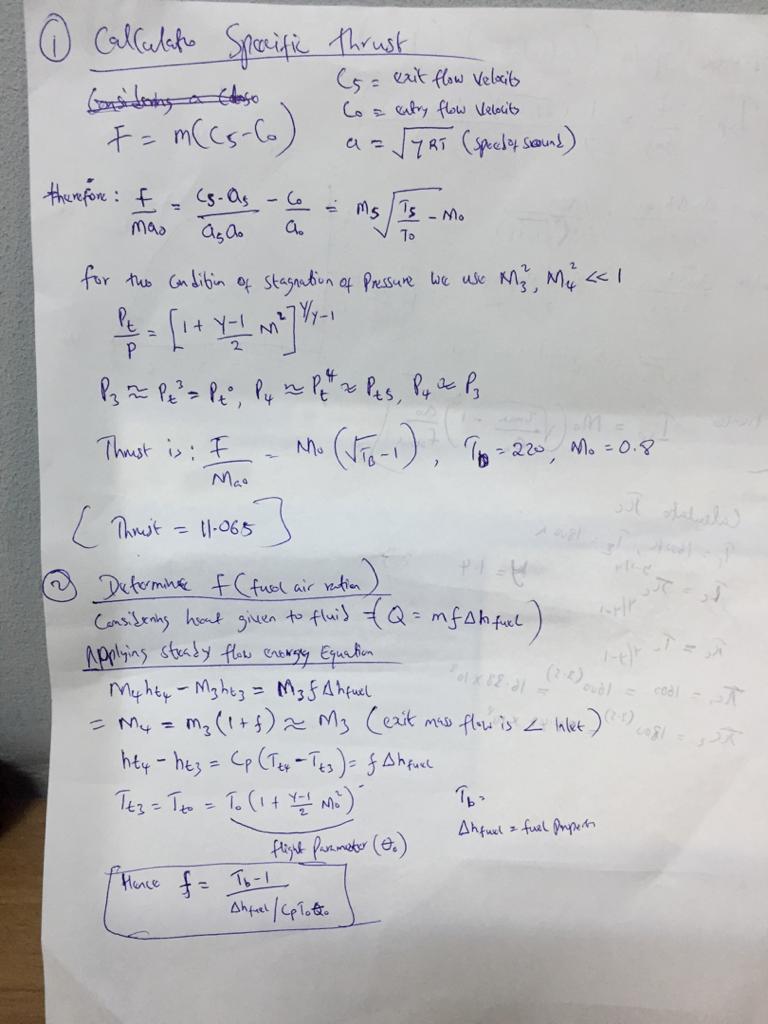 ① Calculate Specific thrust
C5 = exit flow Velocity
Considering a close
C0 = entry flow Velocity
F = m(C5-C0)
a = √γRT (speed of sound)
therefore: f/ma0 = C5·a5/a5a0 - C0/a0 = M5√T5/T0 - M0
for the condition of stagnation of Pressure we use M3², M4² << 1
Pt/P = [1 + γ-1/2 M²]^γ/γ-1
P3 ≈ Pt³ = Pt°, P4 ≈ Pt⁴ ≈ Pt5, P4 ≈ P3
Thrust is: F/Ma0 = M0 (√Tb -1), Tb = 220, M0 = 0.8
[Thrust = 11.065]
② Determine f (fuel air ration)
Considering heat given to fluid = (Q = mfΔhfuel)
Applying steady flow energy Equation
M4ht4 - M3ht3 = M3fΔhfuel
= M4 = m3(1+f) ≈ M3 (exit mass flow is ∠ Inlet)
ht4 - ht3 = Cp(Tt4-Tt3) = fΔhfuel
Tt3 = Tt0 = T0(1 + γ-1/2 M0²)
Tb =
Δhfuel = fuel Property
flight Parameter (θ0)
Hence f = Tb-1/Δhfuel/CpT0θ0